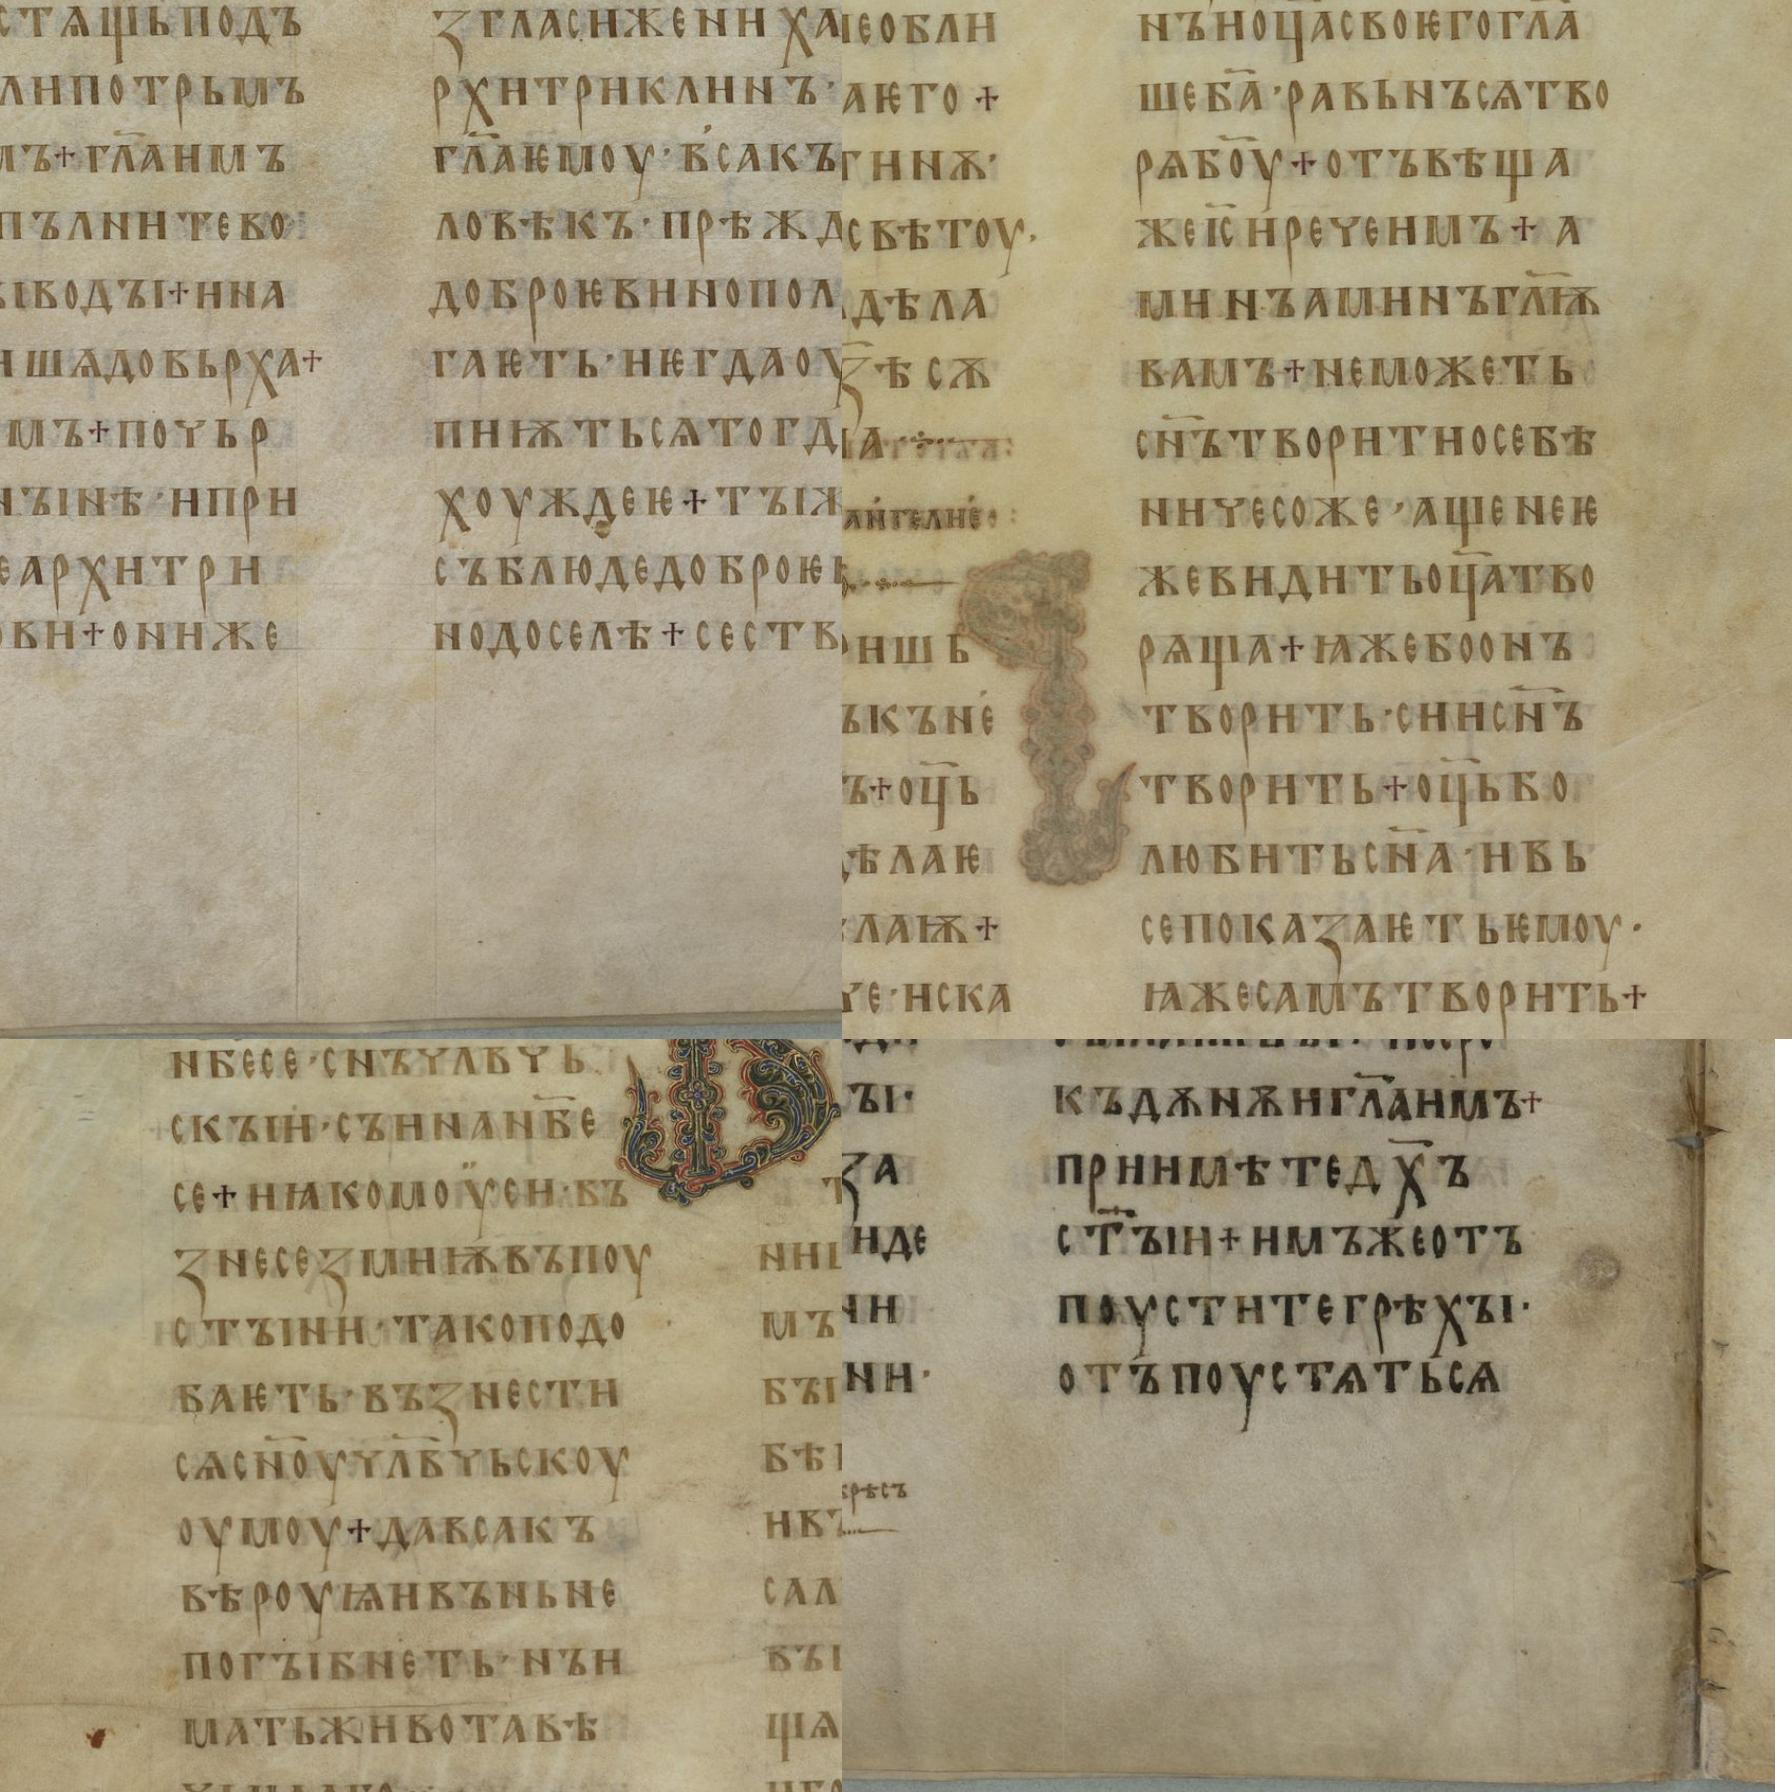 стѧщьподъ
лнпотрьмъ
мъ+гл҃анмъ
пълннтево
ъіводъі+нна
ншѧдовьрха+
мъ+поуьр
нъінѣ·нпрн
еархнтрн
овн+оннже
згласнженнха
рхнтрнклннъ·
гл҃аѥмоу·всакъ
ловѣкъ·прѣжд
доброѥвннопол
гаѥть·нѥгдаоу
пнѭтьсѧтогд
хоуждеѥ+тъіж
съблюдедоброѥв
нодоселѣ+сеств
необлн
аѥго+
гннѫ·
свѣтоу·
дѣла
зѣсѫ
ан҃гелне
рншь
ъкъне
ъ+оц҃ь
дѣлаѥ
лаѭ+
че·нска
нъноц҃асвоѥгогл҃а
шеб҃а·равьнъсѧтво
рѧб҃оу+отъвѣща
жеіс҃нреченмъ+а
мннъамннъгл҃ѭ
вамъ+неможеть
сн҃ътворнтносебѣ
ннчесоже·ащенеѥ
жевндньоц҃атво
рѧща+ꙗжебоонъ
творнть·снсн҃ъ
творнть+оц҃ьбо
любнтьсн҃а·нвь
сепоказаѥтьѥмоу·
ꙗжесамътворнть+
нб҃есе·сн҃ъчл҃вчь
скъін·сънна нб҃е
се+нꙗкомоѵсн·въ
знесезмнѭвъпоу
стъінн·такоподо
баѥть·възнестн
сѧсн҃оучл҃вчьскоу
оумоу+давсакъ
вѣроуѩнвъньне
погъібнеть·нън
матьжнвотавѣ
ннı
мъ
бъі
бѣ
нвъ
сал
въі
щѧ
ъі·
за
нде
нн·
къдѫнѫнгл҃анмъ+
прннмѣтедх҃ъ
ст҃ъін+нмъжеотъ
поустнтегрѣхъі·
отъпоустѧтьсѧ